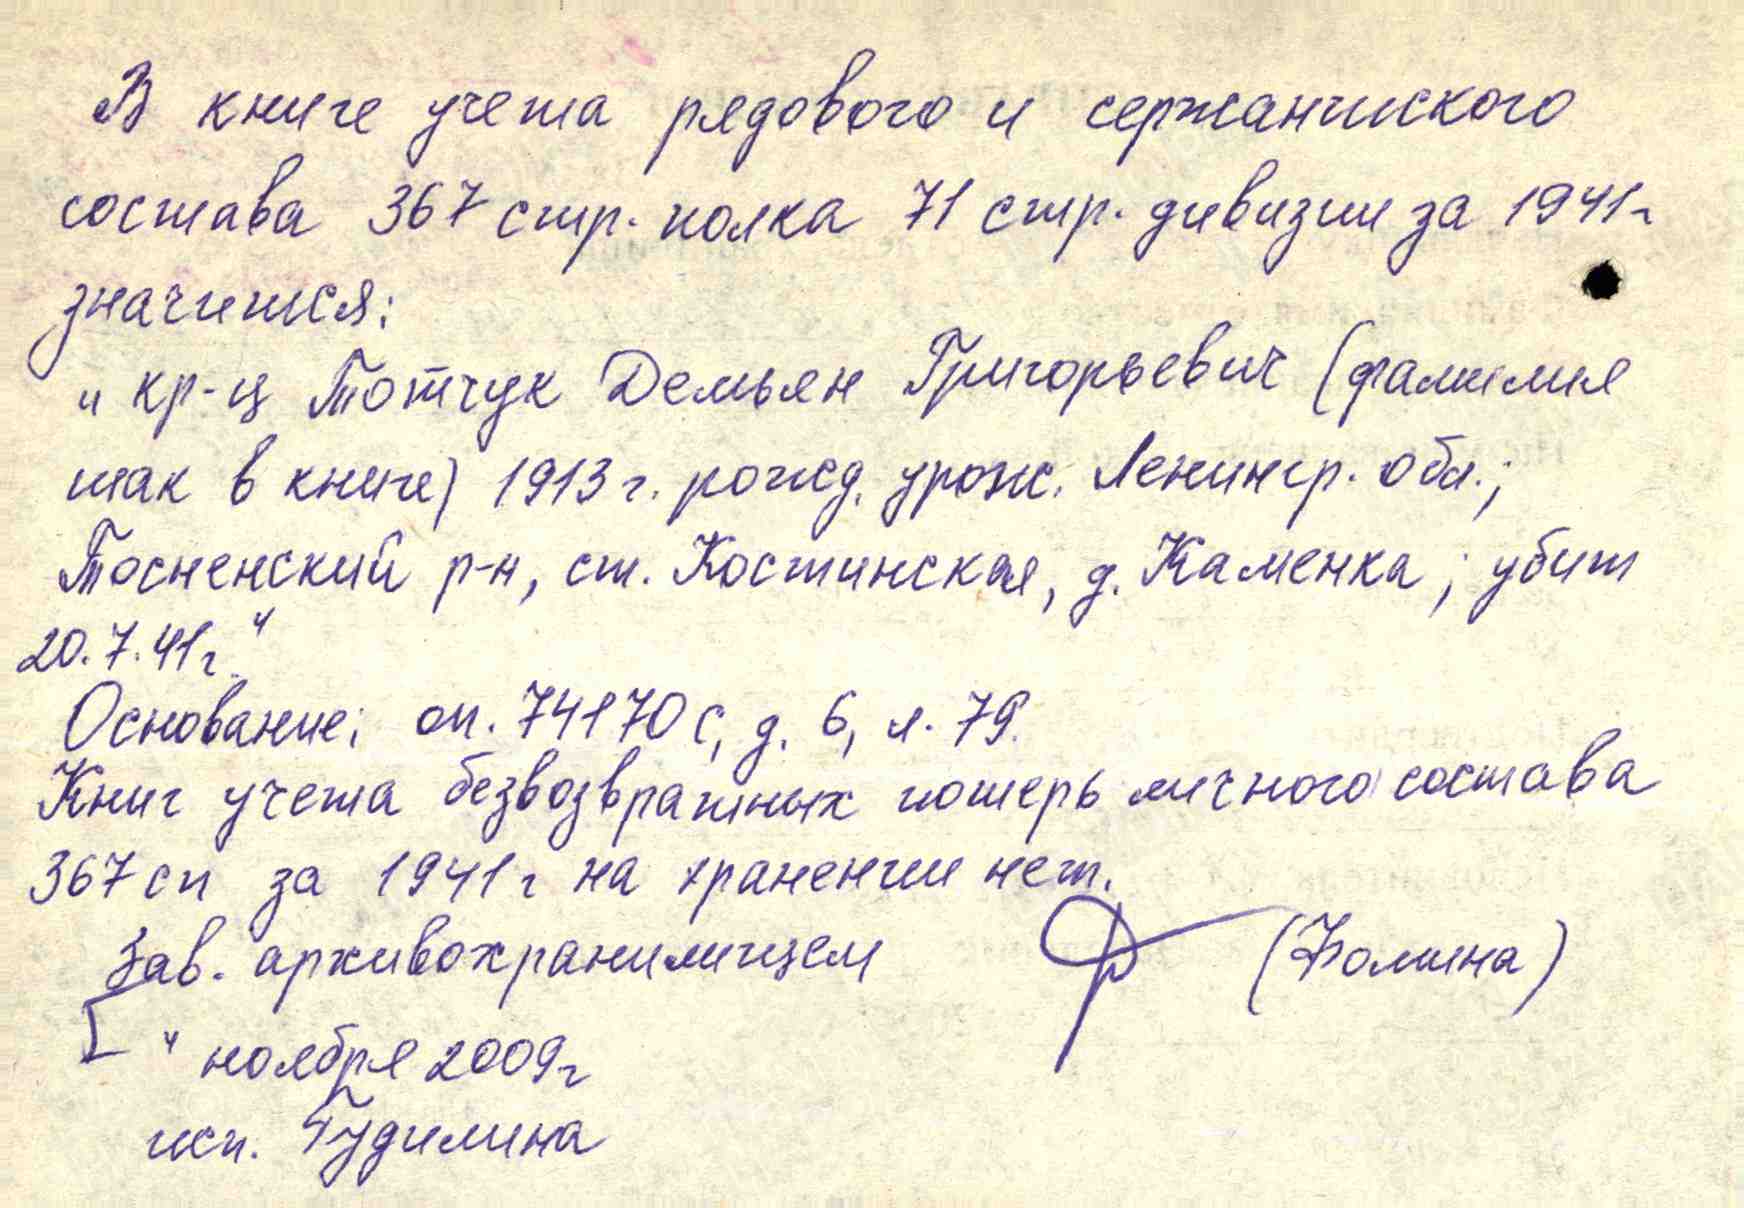 В книге учета рядового и сержантского
состава 367 стр. полка 71 стр. дивизии за 1941г
значится:
"кр-ц Тотчук Демьян Григорьевич (фамилия
так в книге) 1913 г. рожд. урож. Ленингр. обл.;
Тосненский р-н, ст. Костинская, д. Каменка; убит
20.7.41г."
Основание: оп. 74170с, д. 6, л. 79.
Книг учета безвозвратных потерь личного состава
367 сп за 1941г на хранении нет.
Зав. архивохранилищем (Фомина)
" ноября 2009г
исп. Гудилина